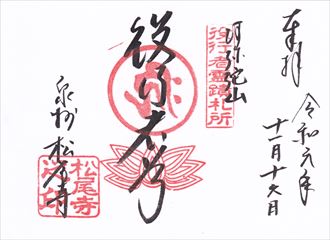 奉拝
令和元年
十一月十六日
役行者靈蹟札所
阿弥陀山
役行
泉州 松尾寺
松尾寺
之印